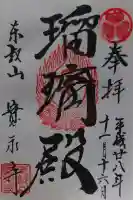 奉拝
平成廿八年
十二月十六日
瑠璃殿
東叡山
寛永寺